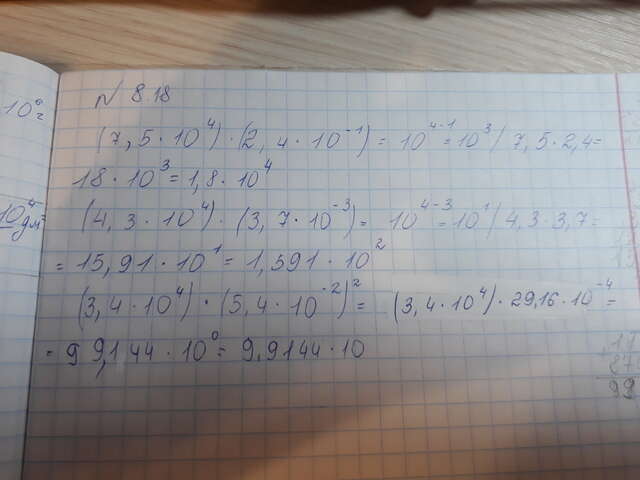 10⁶ г
N 8.18
(7,5·10⁴)·(2,4·10⁻¹)= 10⁴⁻¹=10³/7,5·2,4=
18·10³=1,8·10⁴
10⁴ дм²
(4,3·10⁴)·(3,7·10⁻³)= 10⁴⁻³=10¹/4,3·3,7=
=15,91·10¹=1,591·10²
(3,4·10⁴)·(5,4·10⁻²)²= (3,4·10⁴)·29,16·10⁻⁴=
=99,144·10⁰=9,9144·10
99